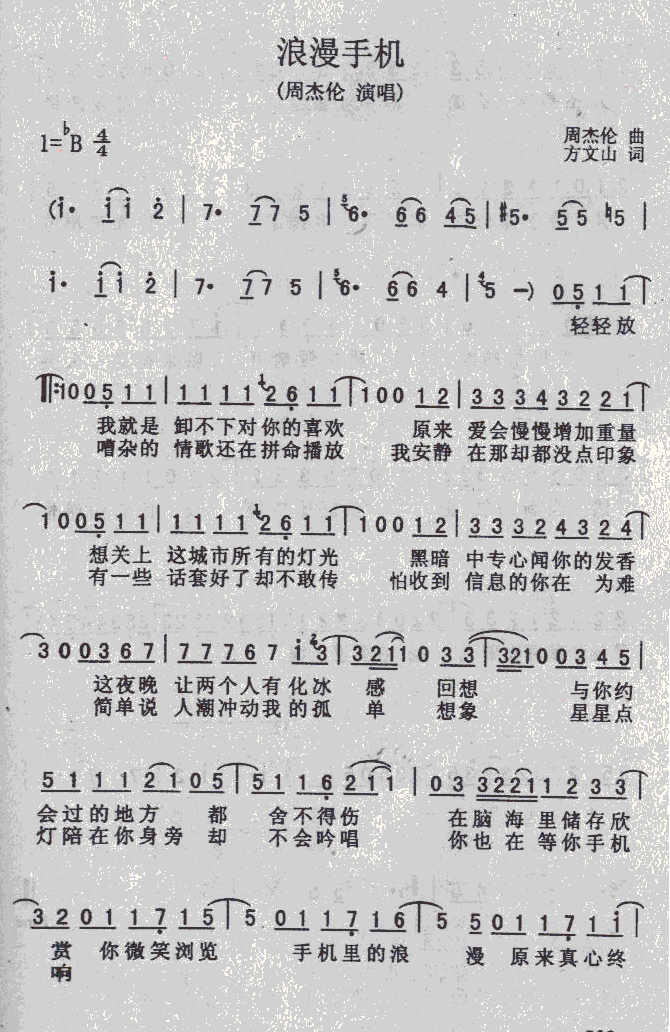 浪漫手机
(周杰伦 演唱)
1=♭B 4/4
周杰伦 曲
方文山 词
(i· i i 2 | 7· 7 7 5 | 6· 6 6 4 5 | #5· 5 5 ♮5 |
i· i i 2 | 7· 7 7 5 | 6· 6 6 4 | 5 —) 0 5 1 1 |
轻轻放
‖: 1 0 0 5 1 1 | 1 1 1 1 2 6 1 1 | 1 0 0 1 2 | 3 3 3 4 3 2 2 1 |
我就是 卸不下对你的喜欢 原来 爱会慢慢增加重量
嘈杂的 情歌还在拼命播放 我安静 在那却都没点印象
1 0 0 5 1 1 | 1 1 1 1 2 6 1 1 | 1 0 0 1 2 | 3 3 3 2 4 3 2 4 |
想关上 这城市所有的灯光 黑暗 中专心闻你的发香
有一些 话套好了却不敢传 怕收到 信息的你在 为难
3 0 0 3 6 7 | 7 7 7 6 7 i 3 | 3 2 1 1 0 3 3 | 3 2 1 0 0 3 4 5 |
这夜晚 让两个人有化冰 感 回想 与你约
简单说 人潮冲动我的孤 单 想象 星星点
5 1 1 1 2 1 0 5 | 5 1 1 6 2 1 1 | 0 3 3 2 2 1 1 2 3 3 |
会过的地方 都 舍不得伤 在脑海里储存欣
灯陪在你身旁 却 不会吟唱 你也在等你手机
3 2 0 1 1 7 1 5 | 5 0 1 1 7 1 6 | 5 5 0 1 1 7 1 i |
赏 你微笑浏览 手机里的浪 漫 原来真心终
响